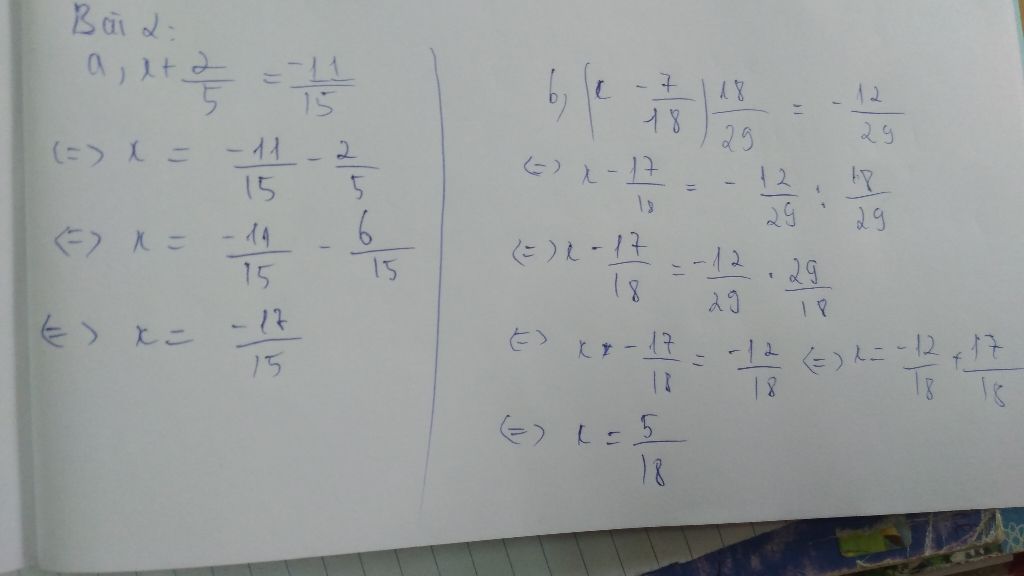 Bài 2:
a, x + 2/5 = -11/15
(=) x = -11/15 - 2/5
(=) x = -11/15 - 6/15
(=) x = -17/15
b, (x - 7/18) 18/29 = - 12/29
(=) x - 17/18 = - 12/29 : 18/29
(=) x - 17/18 = -12/29 . 29/18
(=) x - 17/18 = -12/18 (=) x = -12/18 + 17/18
(=) x = 5/18